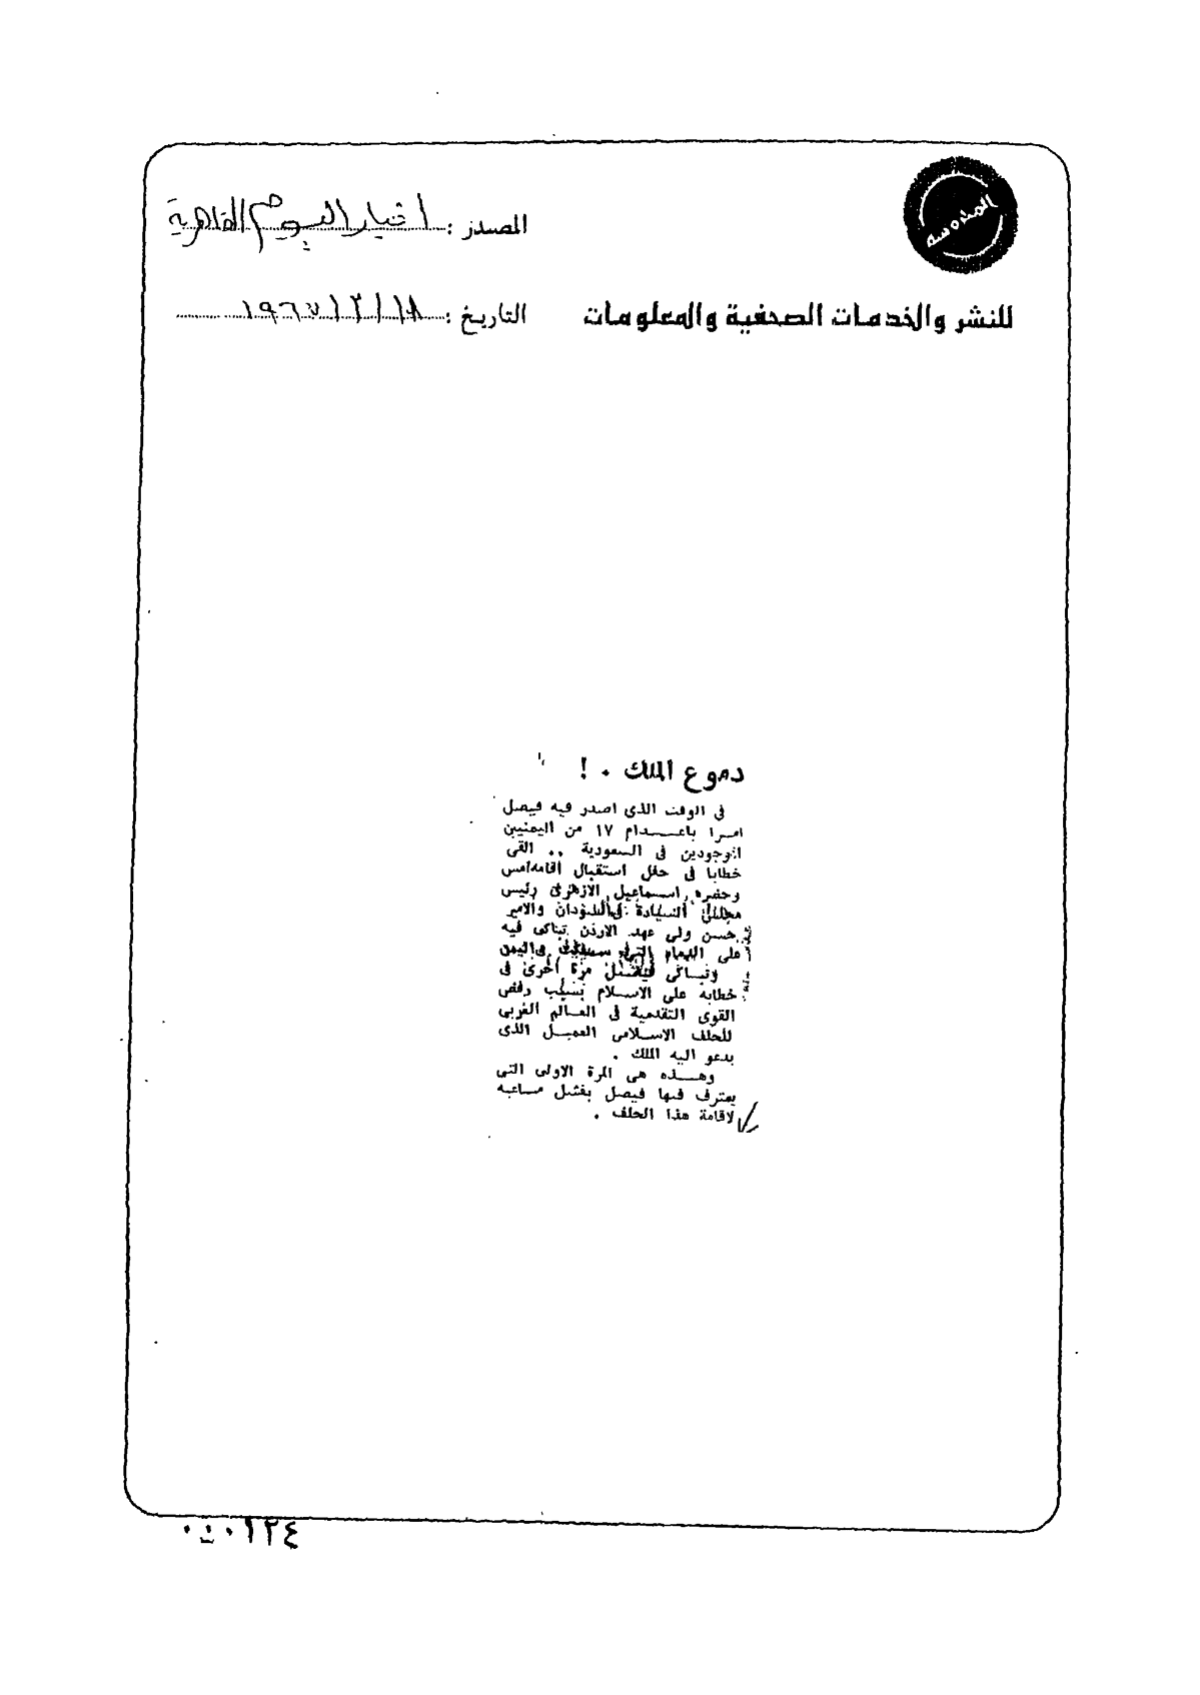 المصدر : اخبار اليوم القاهرية
للنشر والخدمات الصحفية والمعلومات
التاريخ : ١٨ / ٣ / ١٩٦٧
دموع الملك . !
فى الوقت الذى اصدر فيه فيصل
امرا باعدام ١٧ من اليمنيين
الموجودين فى السعودية .. القى
خطابا فى حفل استقبال اقامه امس
وحضره اسماعيل الازهرى رئيس
مجلس السيادة فى السودان والامير
حسن ولى عهد الاردن تباكى فيه
على الدماء التى فى اليمن
وتباكى فيصل مرة اخرى فى
خطابه على الاسلام بسبب رفض
القوى التقدمية فى العالم العربى
للحلف الاسلامى العميل الذى
يدعو اليه الملك .
وهذه هى المرة الاولى التى
يعترف فيها فيصل بفشل مساعيه
لاقامة هذا الحلف .